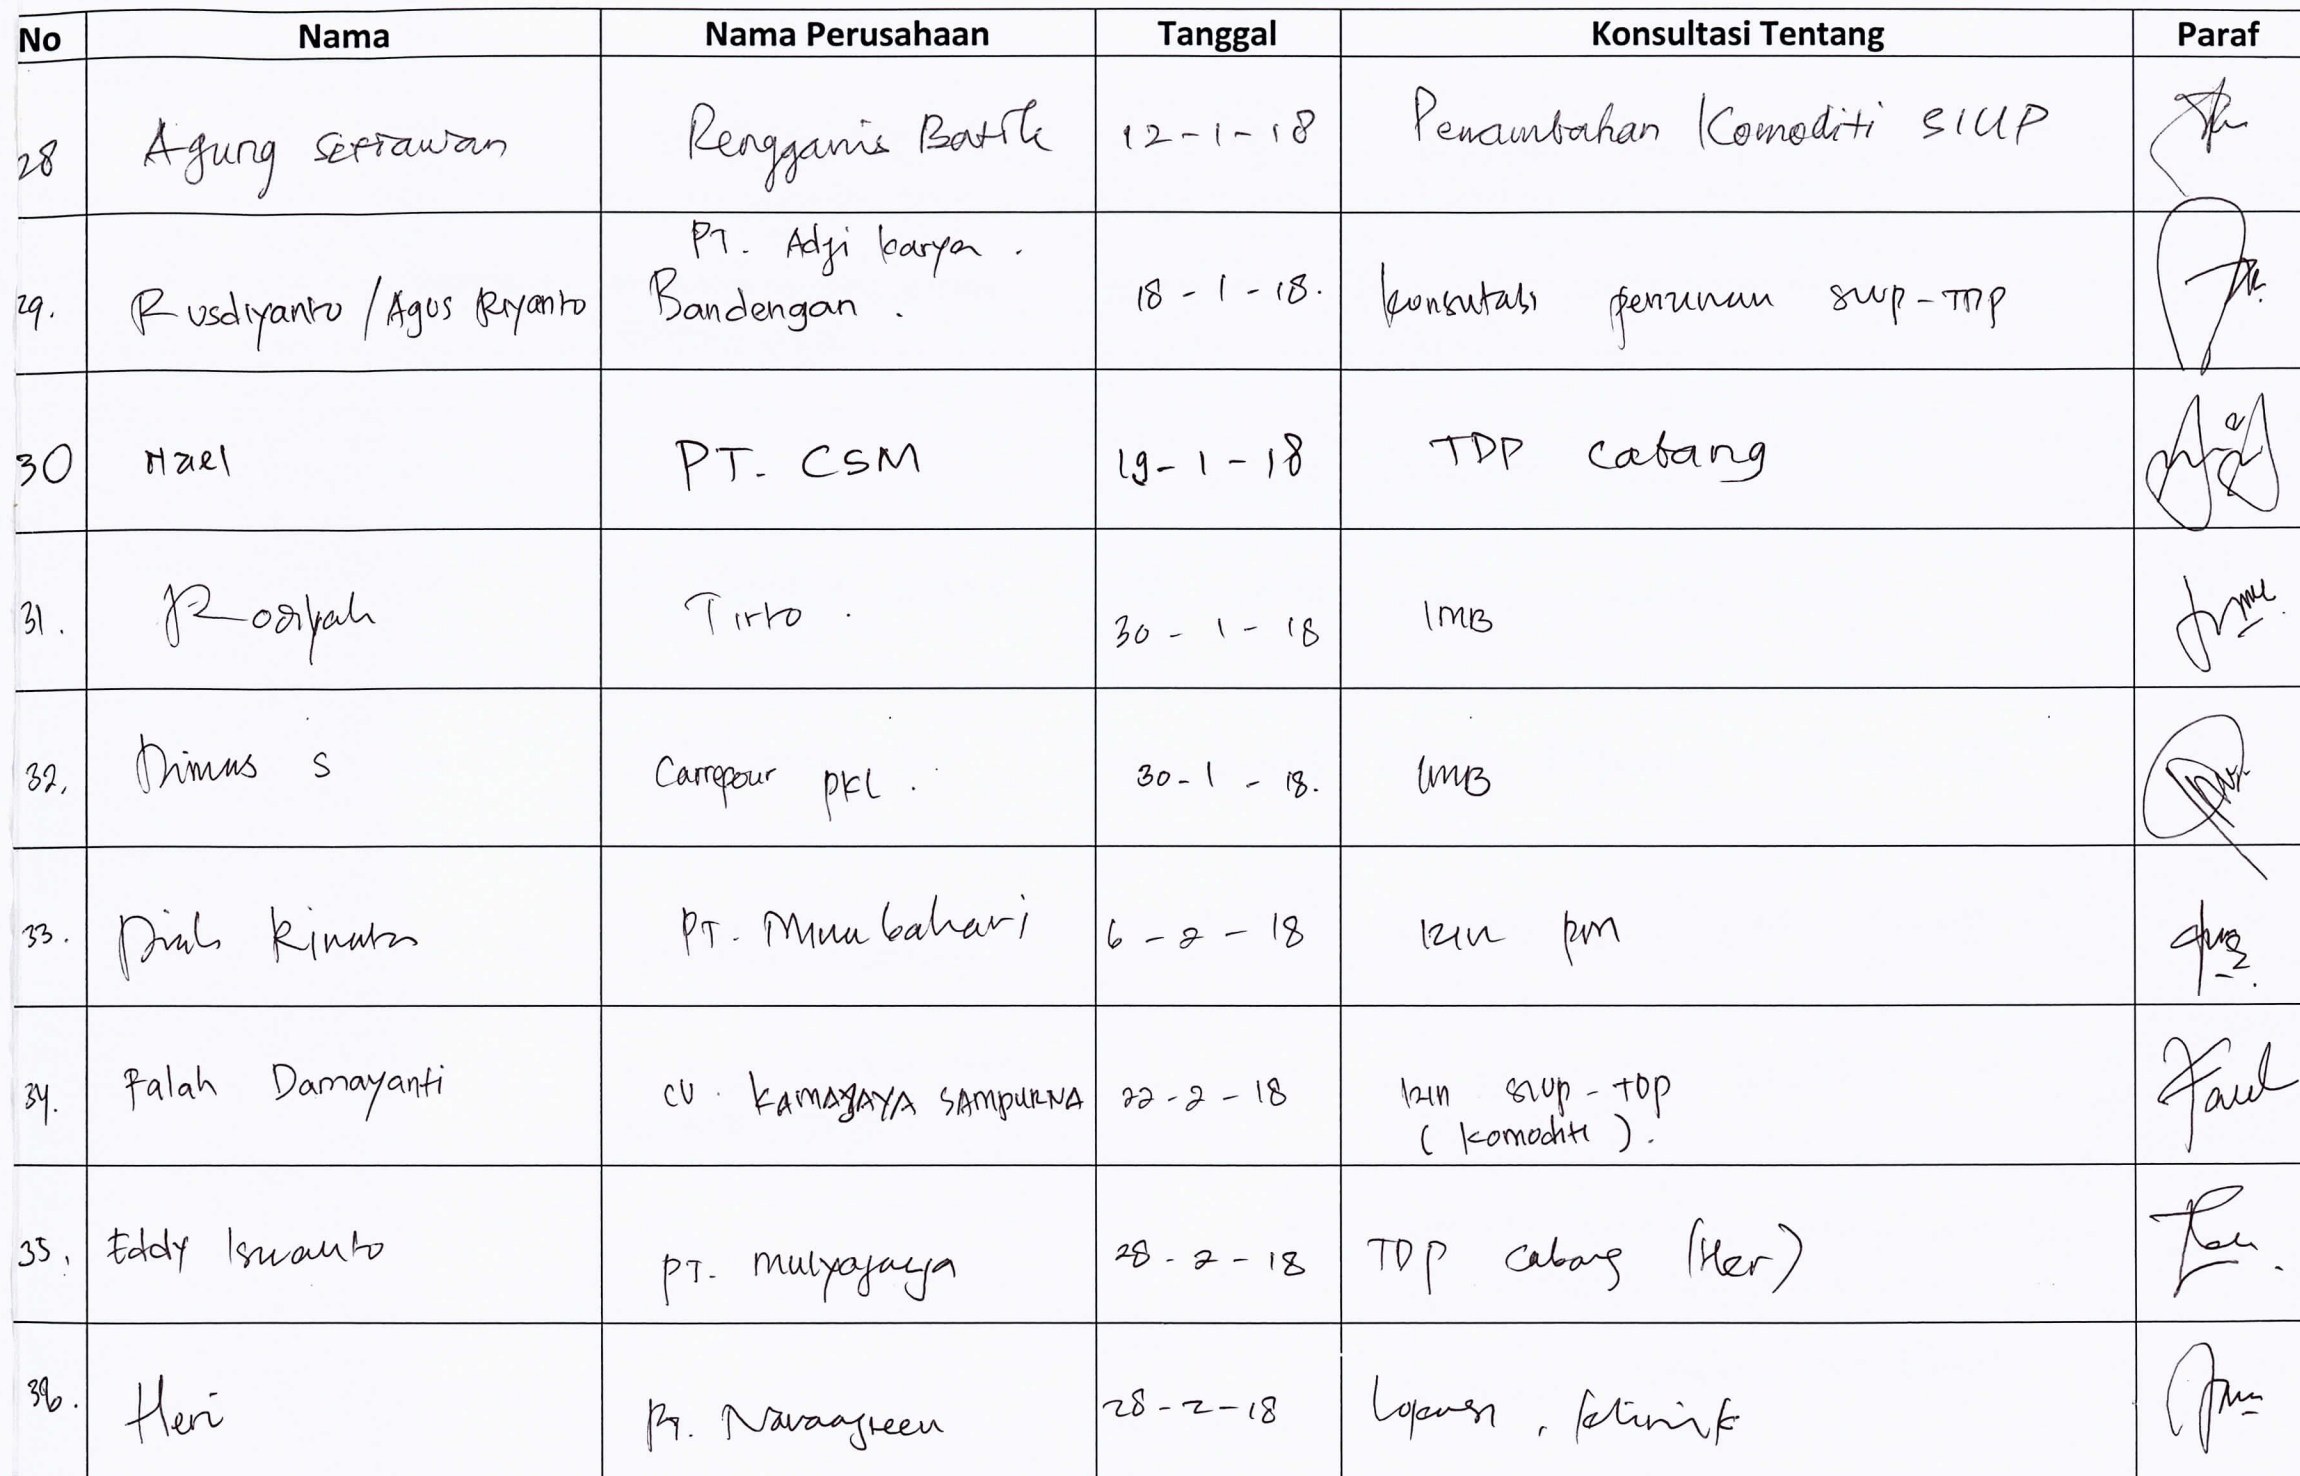 No Nama Nama Perusahaan Tanggal Konsultasi Tentang Paraf
28 Agung Setiawan Rengganis Batik 12-1-18 Penambahan Komoditi SIUP
PT. Adji karya .
29. Rusdiyanto / Agus Riyanto Bandengan . 18-1-18. konsutasi siup-TDP
30 Hael PT. CSM 19-1-18 TDP cabang
31. Rosiyah Tirto . 30-1-18 IMB
32. Dimas S Carrepour pkl . 30-1-18. IMB
33. PT. Mina bahari 6-2-18 izin pm
34. Falah Damayanti CV. KAMAJAYA SAMPURNA 22-2-18 izin siup-TDP
( komoditi ).
35. Eddy Iswanto PT. mulyojaya 28-2-18 TDP cabang (Her)
36. Heri PT. Navaagreen 28-2-18 klinik